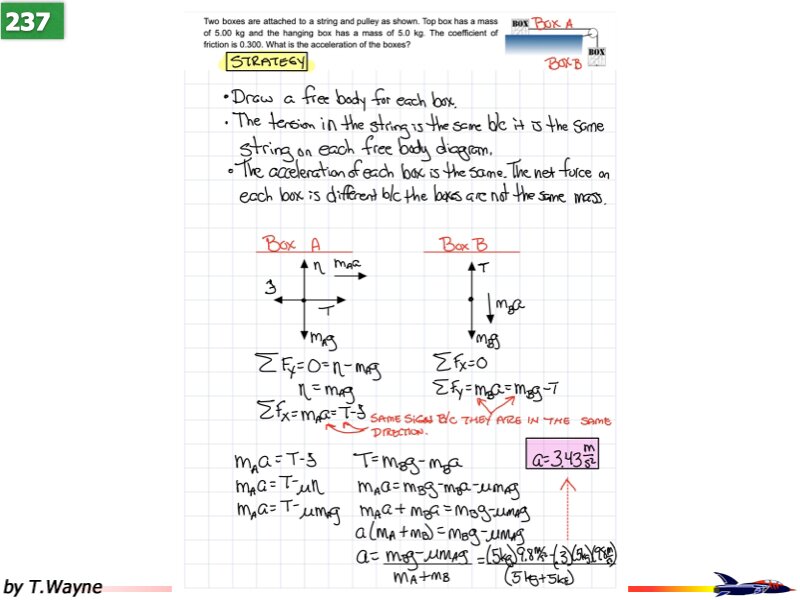 237
Two boxes are attached to a string and pulley as shown. Top box has a mass
of 5.00 kg and the hanging box has a mass of 5.0 kg. The coefficient of
friction is 0.300. What is the acceleration of the boxes?
BOX BOX A
BOX
BOX B
STRATEGY
• Draw a free body for each box.
• The tension in the string is the same b/c it is the same
string on each free body diagram.
• The acceleration of each box is the same. The net force on
each box is different b/c the boxes are not the same mass.
Box A
Box B
n mAa
T
f
T
mBa
mAg
mBg
∑Fy=0=n-mAg
∑Fx=0
n=mAg
∑Fy=mBa=mBg-T
∑Fx=mAa=T-f
SAME SIGN B/C THEY ARE IN THE SAME
DIRECTION.
mAa=T-f
T=mBg-mBa
a=3.43 m/s²
mAa=T-μn
mAa=mBg-mBa-μmAg
mAa=T-μmAg
mAa+mBa=mBg-μmAg
a(mA+mB)=mBg-μmAg
a= mBg-μmAg =(5kg)9.8m/s²-(.3)(5kg)(9.8m/s²)
mA+mB (5kg+5kg)
by T.Wayne